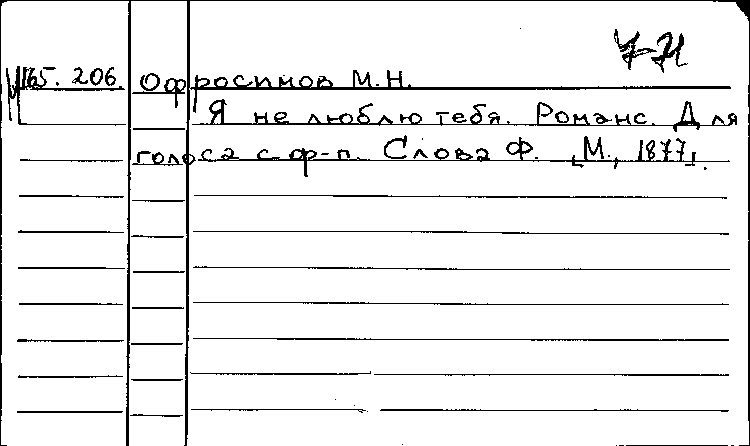 7-71
М 165. 206. Офросимов М.Н.
Я не люблю тебя. Романс. Для
голоса с ф-п. Слова Ф. [М., 1877].